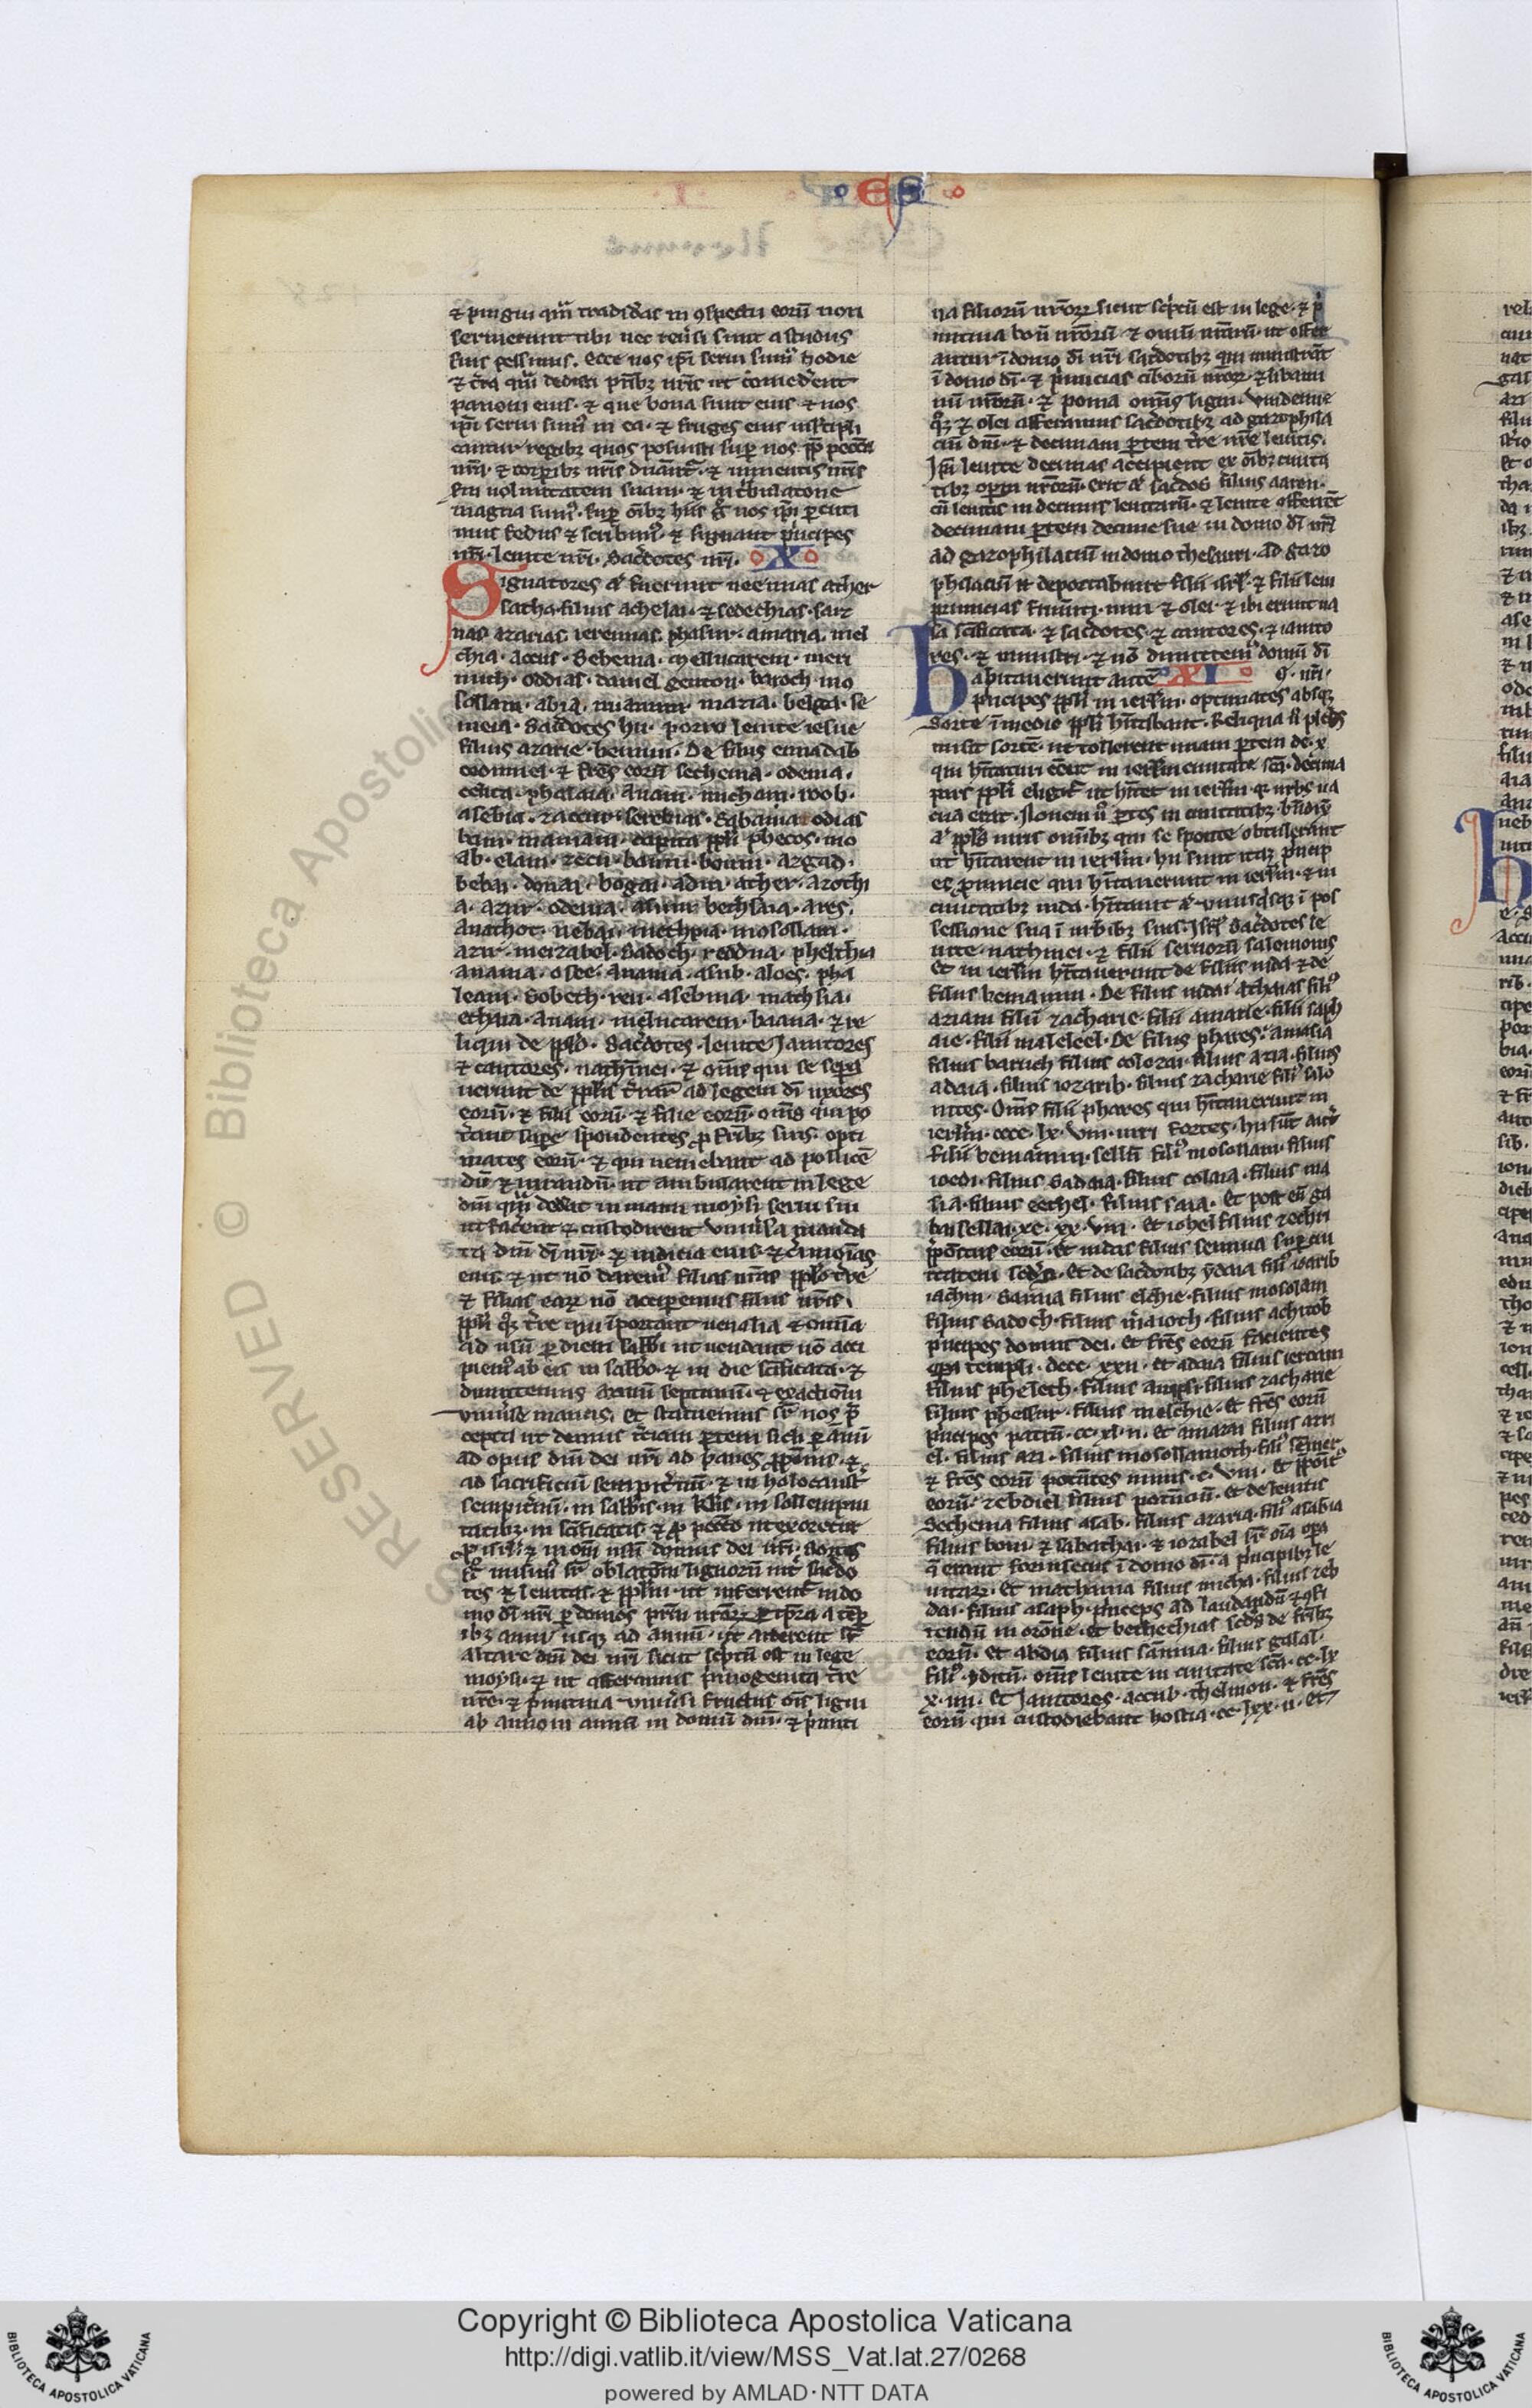 ES
⁊ pingui qm̄ tradidas in ꝯspectu eorū non
seruierunt tibi nec reūsi sunt a studiis
suis pessimis. Ecce nos ip̄i serui sumꝰ hodie
⁊ t̄ra qm̄ dedisti pr̄ibꝫ nr̄is ut comederent
panem eius ⁊ que bona sunt eius ⁊ nos
ip̄i serui sumꝰ in ea. ⁊ fruges eius
regibꝫ quos posuisti sup̄ nos ꝓp̄ pecc̄a
nr̄a ⁊ corporibꝫ nr̄is dn̄ant̄. ⁊ iumentis nr̄is
scd̄m uoluntatem suam. ⁊ in t̄bulatione
magna sumꝰ. sup̄ oībꝫ hiis g̊ nos ip̄i ꝑcuti
mus fedus ⁊ scribimꝰ ⁊ signant pⁱncipes
nr̄i. leuite nr̄i. sac̄dotes nr̄i. X
Signatores aū fuerunt neemias ather
satha filius achelai. ⁊ sedechias. sara
ias azarias. ieremias. phasur. amaria. mel
chia. accus. Sebenia. mellucarem. meri
muth. oddias. daniel genton. baroch. mo
sollam. abia. miamin. maria. belga. se
meia. Sac̄dotes hii. porro leuite iesue
filius azarie. bennui. De filiis ennadab
cedmiel. ⁊ fr̄es eorū sechenia. odenia.
celita. phalaia. Anam. micham. roob.
asebia. zaccur. serebias. Sabania. odias
bani. maniam. capita ppl̄i phecos. mo
ab. elam. zecu. banni. bonni. azgad.
bebai. donai. bogai. adin. ather. azochi
a. azur. odenia. asum. bethsaia. ares.
Anathot. nebai. methpia. mosollam.
azir. meizabel. Sadoch. reddua. phelthia
anania. osee. Anania. asub. aloes. pha
leam. Sobech. reu. asebina. mathsia.
echaia. Anam. mellucarem. baana. ⁊ re
liqui de ppl̄o. Sac̄dotes. leuite. Ianitores
⁊ cantores. nathinnei. ⁊ om̄s qui se sepa
uerunt de ppl̄is t̄rar̄ ad legem dī uxores
eorū. ⁊ filii eorū. ⁊ filie eorū. om̄s qui po
t̄ant sape spondentes ꝓ fr̄ibꝫ suis. opti
mates eorū. ⁊ qui ueniebant ad pollicē
dū ⁊ iurandū. ut ambularent in lege
dn̄i qm̄ dedit in manu moysi serui sui
ut facerent ⁊ custodirent uniūsa manda
ta dn̄i dī nr̄i. ⁊ iudicia eius. ⁊ c̄imonias
eius. ⁊ ut nō daremꝰ filias nr̄as ppl̄o t̄re
⁊ filias eaꝝ nō acciperemus filiis nr̄is.
ppl̄i qꝫ t̄re qui īportant uenalia ⁊ omīa
ad usū ꝑ diem sabb̄i ut uendant nō acci
piemꝰ ab eis in sabb̄o. ⁊ in die sc̄ificata. ⁊
dimittemus annū septimū. ⁊ exactionē
uniūse manus. Et statuemus sr̄ nos p̄
cepta ut demus t̄ciam ꝑtem sicli ꝑ annū
ad opus dn̄i dei nr̄i ad panes ppōnis. ⁊
ad sacrificiū sempit̄nū. ⁊ in holocaust̄
sempit̄nū. in sabb̄is. in kl̄is. in sollempni
tatibꝫ. in sc̄ificatis. ⁊ ꝓ pecc̄o ut exoretur
ꝓ isrl̄. ⁊ in om̄em usū domus dei nr̄i. Sortes
g̊ misimꝰ sr̄ oblationē lignorū int̄ sac̄do
tes ⁊ leuitas. ⁊ ppl̄m. ut inferrent̄ in do
mo dī nr̄i ꝑ domos prm̄ nr̄oꝝ ꝑ tp̄ra a temp
ibꝫ anni usqꝫ ad annū. ut arderent sr̄
altare dn̄i dei nr̄i sicut sc̄ptū est in lege
moysi. ⁊ ut afferamus pⁱmogenita t̄re
nr̄e. ⁊ pⁱmitiua uniūsi fructus om̄s ligni
ab anno in annū in domū dn̄i. ⁊ pⁱmiti
ua filiorū nr̄oꝝ sicut sc̄ptū est in lege. ⁊ pⁱ
mitiua boū nr̄orū ⁊ ouiū nr̄arū. ut offer
antur ī domo dī nr̄i sac̄dotibꝫ qui ministrāt
ī domo dī. ⁊ pⁱmicias ciborū nr̄oꝝ. ⁊ libami
nū nr̄orū. ⁊ poma om̄s ligni. Vindemie
qꝫ ⁊ olei afferamus sac̄dotibꝫ ad gazophila
ciū dn̄i. ⁊ decimam ꝑtem t̄re nr̄e leuitis.
Ip̄i leuite decimas accipient ex oībꝫ ciuita
tibꝫ operū nr̄orū. erit aū sac̄dos filius aaron.
cū leuitis in decimis leuitarū. ⁊ leuite offerēt
decimam ꝑtem decime sue in domo dī nr̄i
ad gazophilaciū in domo thesauri. ad gazo
philaciū n̄ deportabunt filii isrl̄. ⁊ filii leui
pⁱmicias frumti. uini ⁊ olei. ⁊ ibi erunt ua
sa sc̄ificata. ⁊ sac̄dotes. ⁊ cantores. ⁊ ianito
res. ⁊ ministri. ⁊ nō dimittemꝰ domū dī
nr̄i.
Habitauerunt autē XI
pⁱncipes ppl̄i in ierl̄m. optimates absqꝫ
sorte ī medio ppl̄i hītabant. Reliqua ū plebs
misit sortē. ut tollerent unam ꝑtem de. x
qui hītaturi eēnt in ierl̄m ciuitate sc̄a. decima
pars ppl̄i eligit̄ ut hītet in ierl̄m. qr̄ urbs ua
cua erat. Nouem ū ꝑtes in ciuitatibꝫ. bn̄dix̄
aū ppl̄s uiris omībꝫ qui se sponte obtulerant
ut hītarent in ierl̄m. hii sunt itaqꝫ pⁱncip
es ꝓuincie qui hītauerunt in ierl̄m. ⁊ in
ciuitatibꝫ iuda. hītauit aū. unusqⁱsqꝫ ī pos
sessione sua ī urbibꝫ suis. Isrl̄. Sac̄dotes le
uite. nathinei. ⁊ filii seruorū salomonis
Et in ierl̄m hītauerunt de filiis iuda ⁊ de
filiis beniamin. De filiis iudai. Athaias filiꝰ
aziam filii zacharie. filii amarie. filii saph
aie. filii maleleel. De filiis phares. amasia
filius baruch filius colozai. filius azia. filius
adaia. filius iozarib. filius zacharie filiꝰ silo
nites. Om̄s filii phares qui hītauerunt in
ierl̄m. cccc. lx. viii. uiri fortes. hii sūt aūt
filii beniamin. sellū filiꝰ mosollam. filius
ioedi. filius Sadaia. filius colaia. filius ma
sia. filius eethel. filius saia. Et post eū ga
bai sellai. xc. xx. viii. Et iohel filius zechri
ppōitus eorū. Et iudas filius sennua sup̄ ciui
tatem sc̄ds. Et de sac̄dotibꝫ ydaia filiꝰ ioarib
iachin. Saraia filius elchie. filius mosolam
filius Sadoch. filius maioth. filius achitob
pⁱnceps domus dei. Et fr̄es eorū facientes
opera templi. dccc. xxii. Et adaia filius ieroam
filius pheleth. filius amsi. filius zacharie
filius phessur. filius melchie. Et fr̄es eorū
pⁱncipes patrū. cc. xl. ii. Et amazai filius azri
el. filius azi. filius mosollamoth. filiꝰ semer
⁊ fr̄es eorū potētes nimis. c. viii. Et ppōitꝰ
eorū. zebdiel filius potn̄ciū. Et de leuitis
Sechenia filius asab. filius azaria. filiꝰ asabia
filius boni. ⁊ sabathai. ⁊ iozabel sr̄ oīa opa
q̄ erant forinsecus ī domo dī. a pⁱncipibꝫ le
uitaꝝ. Et mathania filius micha. filius zeb
dai. filius asaph. pⁱnceps ad laudandū ⁊ ꝯfi
tendū in orōne. Et bethechias sc̄ds de fr̄ibꝫ
eorū. Et abdia filius samua. filius galal.
filiꝰ yditū. om̄s leuite in ciuitate sc̄a. cc. lx
x. iiii. Et Ianitores. accub. thelmon. ⁊ fr̄es
eorū qui custodiebant hostia. cc. lxx. ii. Et
RESERVED © Biblioteca Apostolica
Copyright © Biblioteca Apostolica Vaticana
http://digi.vatlib.it/view/MSS_Vat.lat.27/0268
powered by AMLAD · NTT DATA
BIBLIOTECA APOSTOLICA VATICANA
BIBLIOTECA APOSTOLICA VATICANA